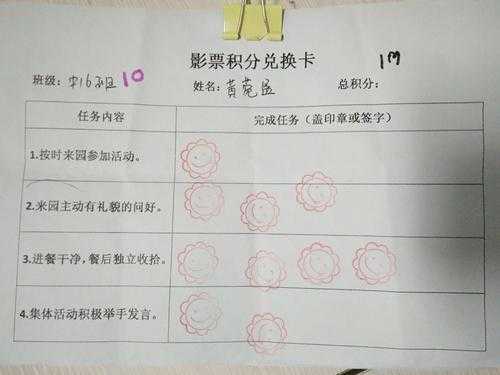 影票积分兑换卡
班级：中16班 10 姓名：黄苑 总积分：
任务内容 完成任务（盖印章或签字）
1.按时来园参加活动。
2.来园主动有礼貌的问好。
3.进餐干净，餐后独立收拾。
4.集体活动积极举手发言。